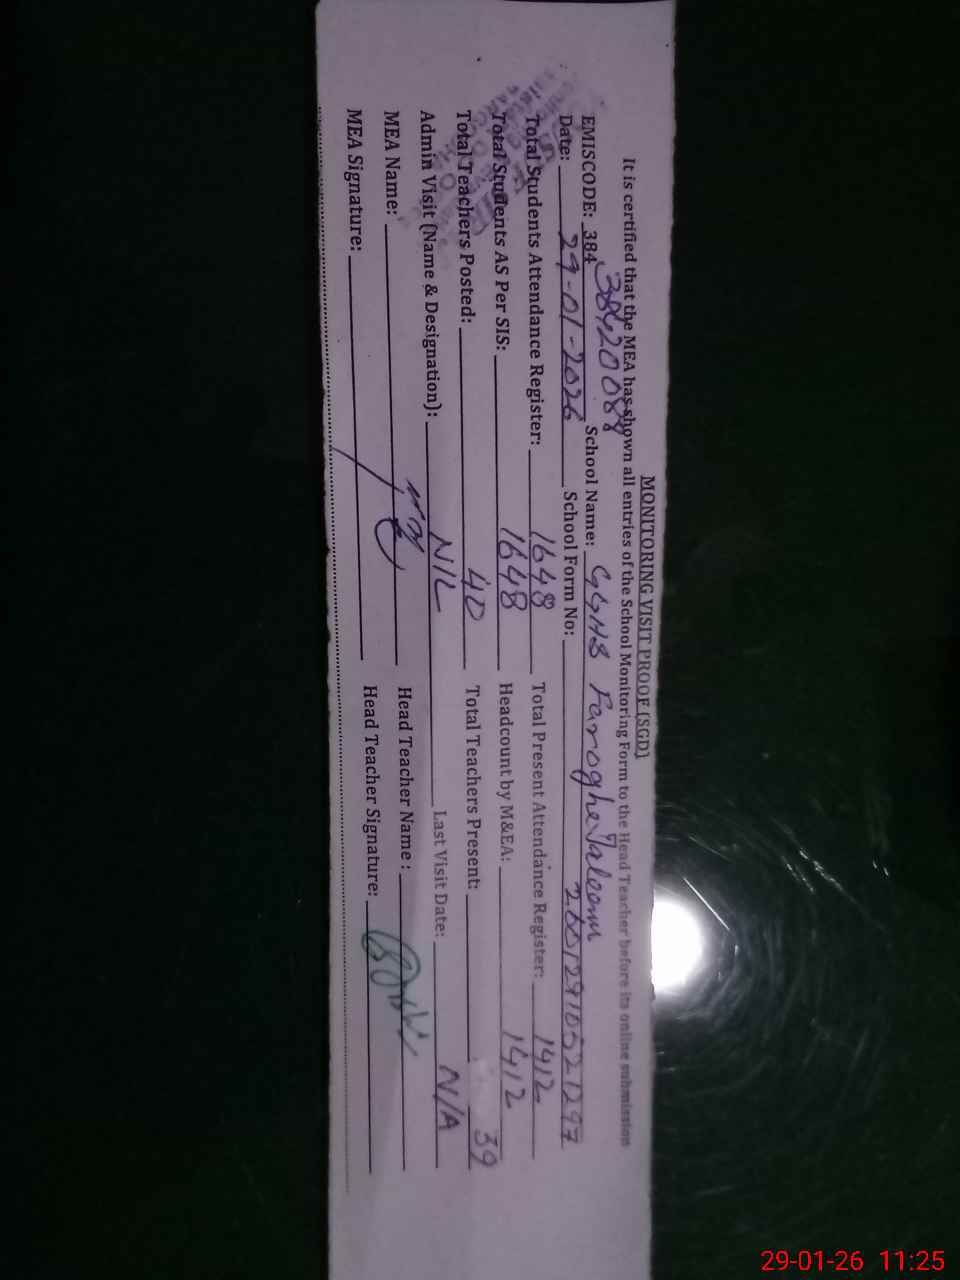 MONITORING VISIT PROOF (SGD)
It is certified that the MEA has shown all entries of the School Monitoring Form to the Head Teacher before its online submission
EMISCODE: 384 38420088 School Name: GGHS Faroghe Taleem
Date: 29-01-2026 School Form No: 26012910521297
Total Students Attendance Register: 1648 Total Present Attendance Register: 1412
Total Students AS Per SIS: 1648 Headcount by M&EA: 1412
Total Teachers Posted: 40 Total Teachers Present: 39
Admin Visit (Name & Designation): NIL Last Visit Date: N/A
MEA Name: Head Teacher Name :
MEA Signature: Head Teacher Signature:
29-01-26 11:25